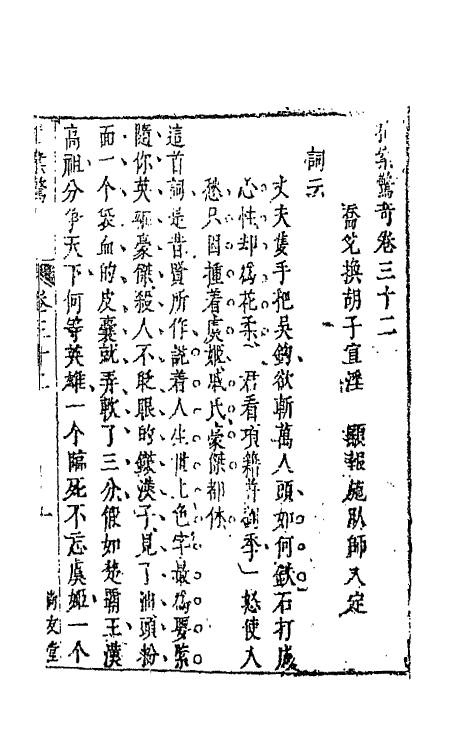 拍案驚奇卷三十二
喬兌換胡子宣淫　顯報施臥師入定
詞云
丈夫隻手把吳鉤欲斬萬人頭如何鉄石打成
心性却為花柔君看項籍并劉季一怒使人
愁只因撞着虞姬戚氏豪傑都休
這首詞是昔賢所作說着人生世上色字最為要緊
隨你英雄豪傑殺人不眨眼的鉄漢子見了油頭粉
面一个袋血的皮囊就弄軟了三分假如楚霸王漢
高祖分爭天下何等英雄一个臨死不忘虞姬一个
卷三十二
一
尚友堂